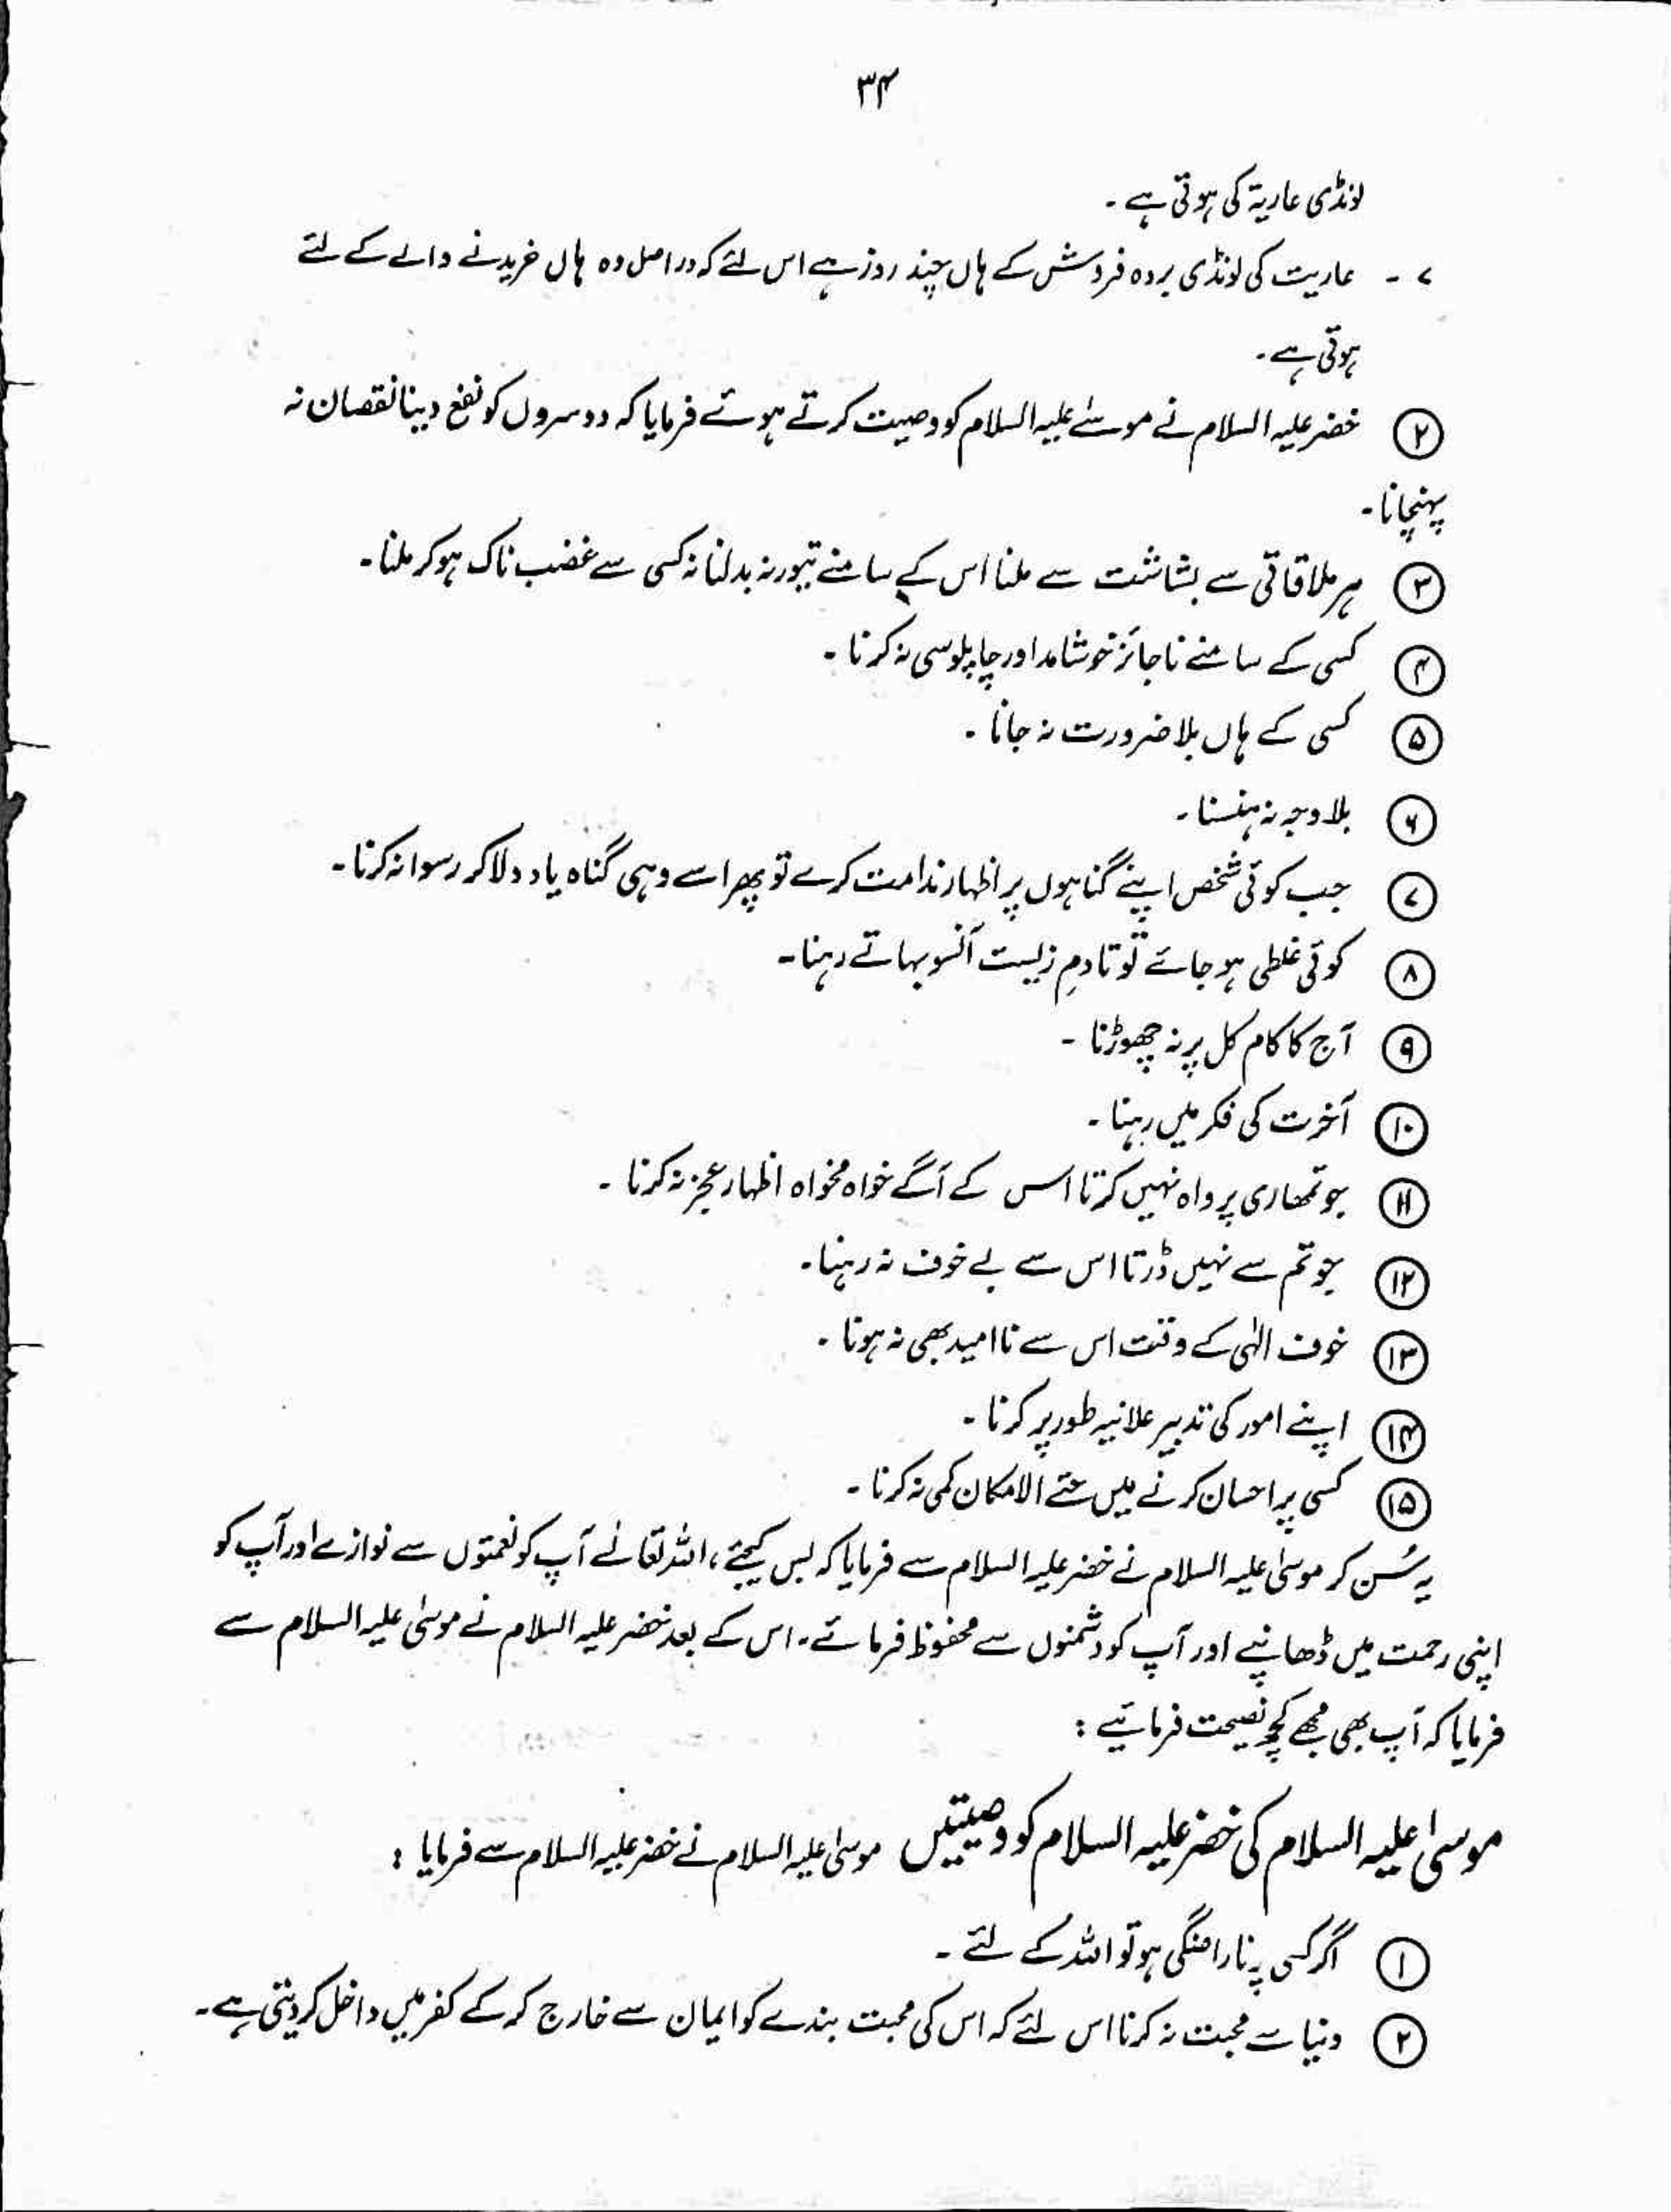 ۳۴
لونڈی عاریۃ کی ہوتی ہے ۔
۷ ۔ عاریت کی لونڈی بردہ فروش کے ہاں چند روز ہے اس لئے کہ دراصل وہ ہاں خریدنے والے کے لئے
ہوتی ہے ۔
۲ خضر علیہ السلام نے موسےٰ علیہ السلام کو وصیت کرتے ہوئے فرمایا کہ دوسروں کو نفع دینا نقصان نہ
پہنچانا ۔
۳ ہر ملاقاتی سے بشاشت سے ملنا اس کے سامنے تیور نہ بدلنا نہ کسی سے غضب ناک ہو کر ملنا ۔
۴ کسی کے سامنے ناجائز خوشامد اور چاپلوسی نہ کرنا ۔
۵ کسی کے ہاں بلا ضرورت نہ جانا ۔
۶ بلا وجہ نہ ہنسنا ۔
۷ جب کوئی شخص اپنے گناہوں پر اظہار ندامت کرے تو پھر اسے وہی گناہ یاد دلا کر رسوا نہ کرنا ۔
۸ کوئی غلطی ہو جائے تو تادمِ زیست آنسو بہاتے رہنا ۔
۹ آج کا کام کل پر نہ چھوڑنا ۔
۱۰ آخرت کی فکر میں رہنا ۔
۱۱ جو تمھاری پرواہ نہیں کرتا اس کے آگے خواہ مخواہ اظہار عجز نہ کرنا ۔
۱۲ جو تم سے نہیں ڈرتا اس سے بے خوف نہ رہنا ۔
۱۳ خوف الٰہی کے وقت اس سے نا امید بھی نہ ہونا ۔
۱۴ اپنے امور کی تدبیر علانیہ طور پر کرنا ۔
۱۵ کسی پر احسان کرنے میں حتے الامکان کمی نہ کرنا ۔
یہ سُن کر موسیٰ علیہ السلام نے خضر علیہ السلام سے فرمایا کہ بس کیجئے، اللہ تعالےٰ آپ کو نعمتوں سے نوازے اور آپ کو
اپنی رحمت میں ڈھانپے اور آپ کو دشمنوں سے محفوظ فرمائے ۔ اس کے بعد خضر علیہ السلام نے موسیٰ علیہ السلام سے
فرمایا کہ آپ بھی مجھے کچھ نصیحت فرمائیے :
موسیٰ علیہ السلام کی خضر علیہ السلام کو وصیتیں موسیٰ علیہ السلام نے خضر علیہ السلام سے فرمایا :
۱ اگر کسی پہ ناراضگی ہو تو اللہ کے لئے ۔
۲ دنیا سے محبت نہ کرنا اس لئے کہ اس کی محبت بندے کو ایمان سے خارج کر کے کفر میں داخل کر دیتی ہے ۔